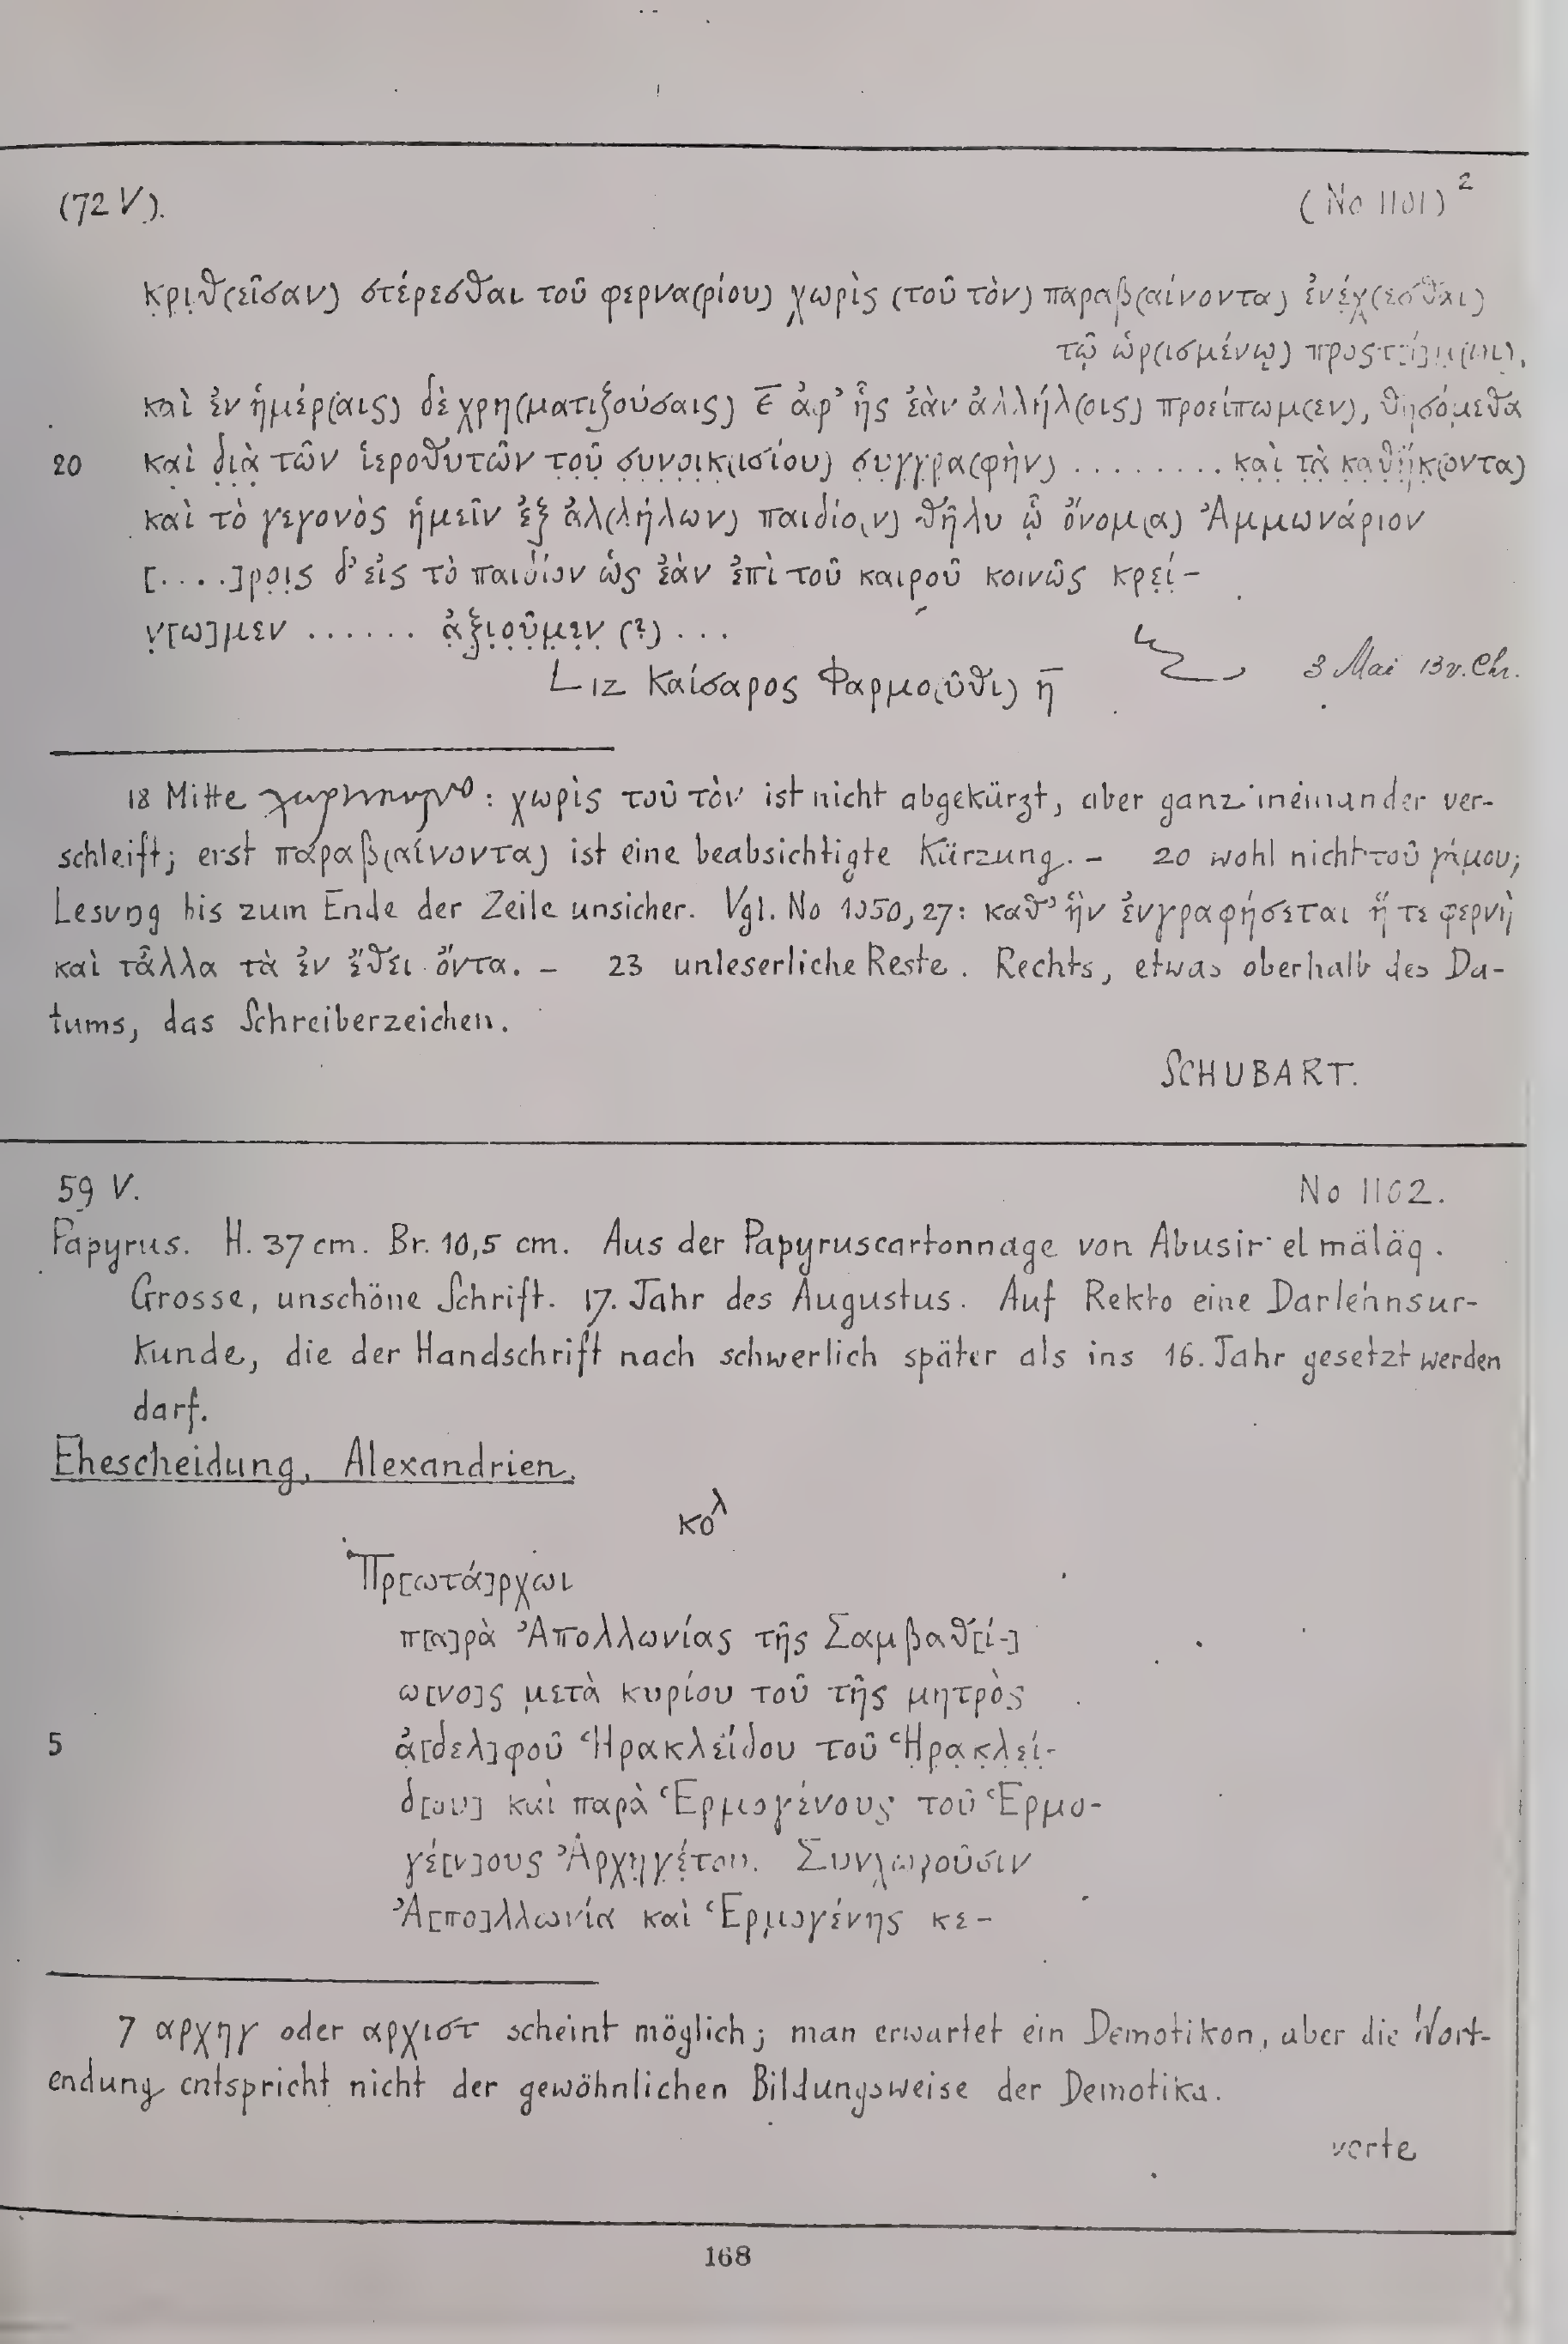 (72 V). (No 1101)²
κριθ(εῖσαν) στέρεσθαι τοῦ φερνα(ρίου) χωρὶς (τοῦ τὸν) παραβ(αίνοντα) ἐνέχ(εσθαι)
τῷ ὡρ(ισμένῳ) προστ[ί]μ(ωι).
καὶ ἐν ἡμέρ(αις) δὲ χρη(ματιζούσαις) ε̅ ἀφ' ἧς ἐὰν ἀλλήλ(οις) προείπωμ(εν), θησόμεθα
20 καὶ διὰ τῶν ἱεροθυτῶν τοῦ συνοικ(ισίου) συγγρα(φὴν) ........ καὶ τὰ καθήκ(οντα)
καὶ τὸ γεγονὸς ἡμεῖν ἐξ ἀλ(λήλων) παιδίο(ν) θῆλυ ᾧ ὄνομ(α) Ἀμμωνάριον
[....]ροις δ' εἰς τὸ παιδίον ὡς ἐὰν ἐπὶ τοῦ καιροῦ κοινῶς κρεί-
ν[ω]μεν ...... ἀξιοῦμεν (?) ...
L ιζ Καίσαρος Φαρμο(ῦθι) η̅ 3 Mai 13 v. Chr.
18 Mitte : χωρὶς τοῦ τὸν ist nicht abgekürzt, aber ganz ineinander ver-
schleift; erst παραβ(αίνοντα) ist eine beabsichtigte Kürzung. – 20 wohl nicht τοῦ γάμου;
Lesung bis zum Ende der Zeile unsicher. Vgl. No 1050, 27: καθ' ἣν ἐνγραφήσεται ἥ τε φερνὴ
καὶ τἆλλα τὰ ἐν ἔθει ὄντα. – 23 unleserliche Reste. Rechts, etwas oberhalb des Da-
tums, das Schreiberzeichen.
SCHUBART.
59 V. No 1102.
Papyrus. H. 37 cm. Br. 10,5 cm. Aus der Papyruscartonnage von Abusir el mäläq.
Grosse, unschöne Schrift. 17. Jahr des Augustus. Auf Rekto eine Darlehnsur-
kunde, die der Handschrift nach schwerlich später als ins 16. Jahr gesetzt werden
darf.
Ehescheidung, Alexandrien.
κολ
Πρ[ωτά]ρχωι
π[α]ρὰ Ἀπολλωνίας τῆς Σαμβαθ[ί-]
ω[νο]ς μετὰ κυρίου τοῦ τῆς μητρὸς
5 ἀ[δελ]φοῦ Ἡρακλείδου τοῦ Ἡρακλεί-
δ[ου] καὶ παρὰ Ἑρμογένους τοῦ Ἑρμο-
γέ[ν]ους Ἀρχηγέτου. Συνχωροῦσιν
Ἀ[πο]λλωνία καὶ Ἑρμογένης κε-
7 αρχηγ oder αρχιστ scheint möglich; man erwartet ein Demotikon, aber die Wort-
endung entspricht nicht der gewöhnlichen Bildungsweise der Demotika.
verte
168